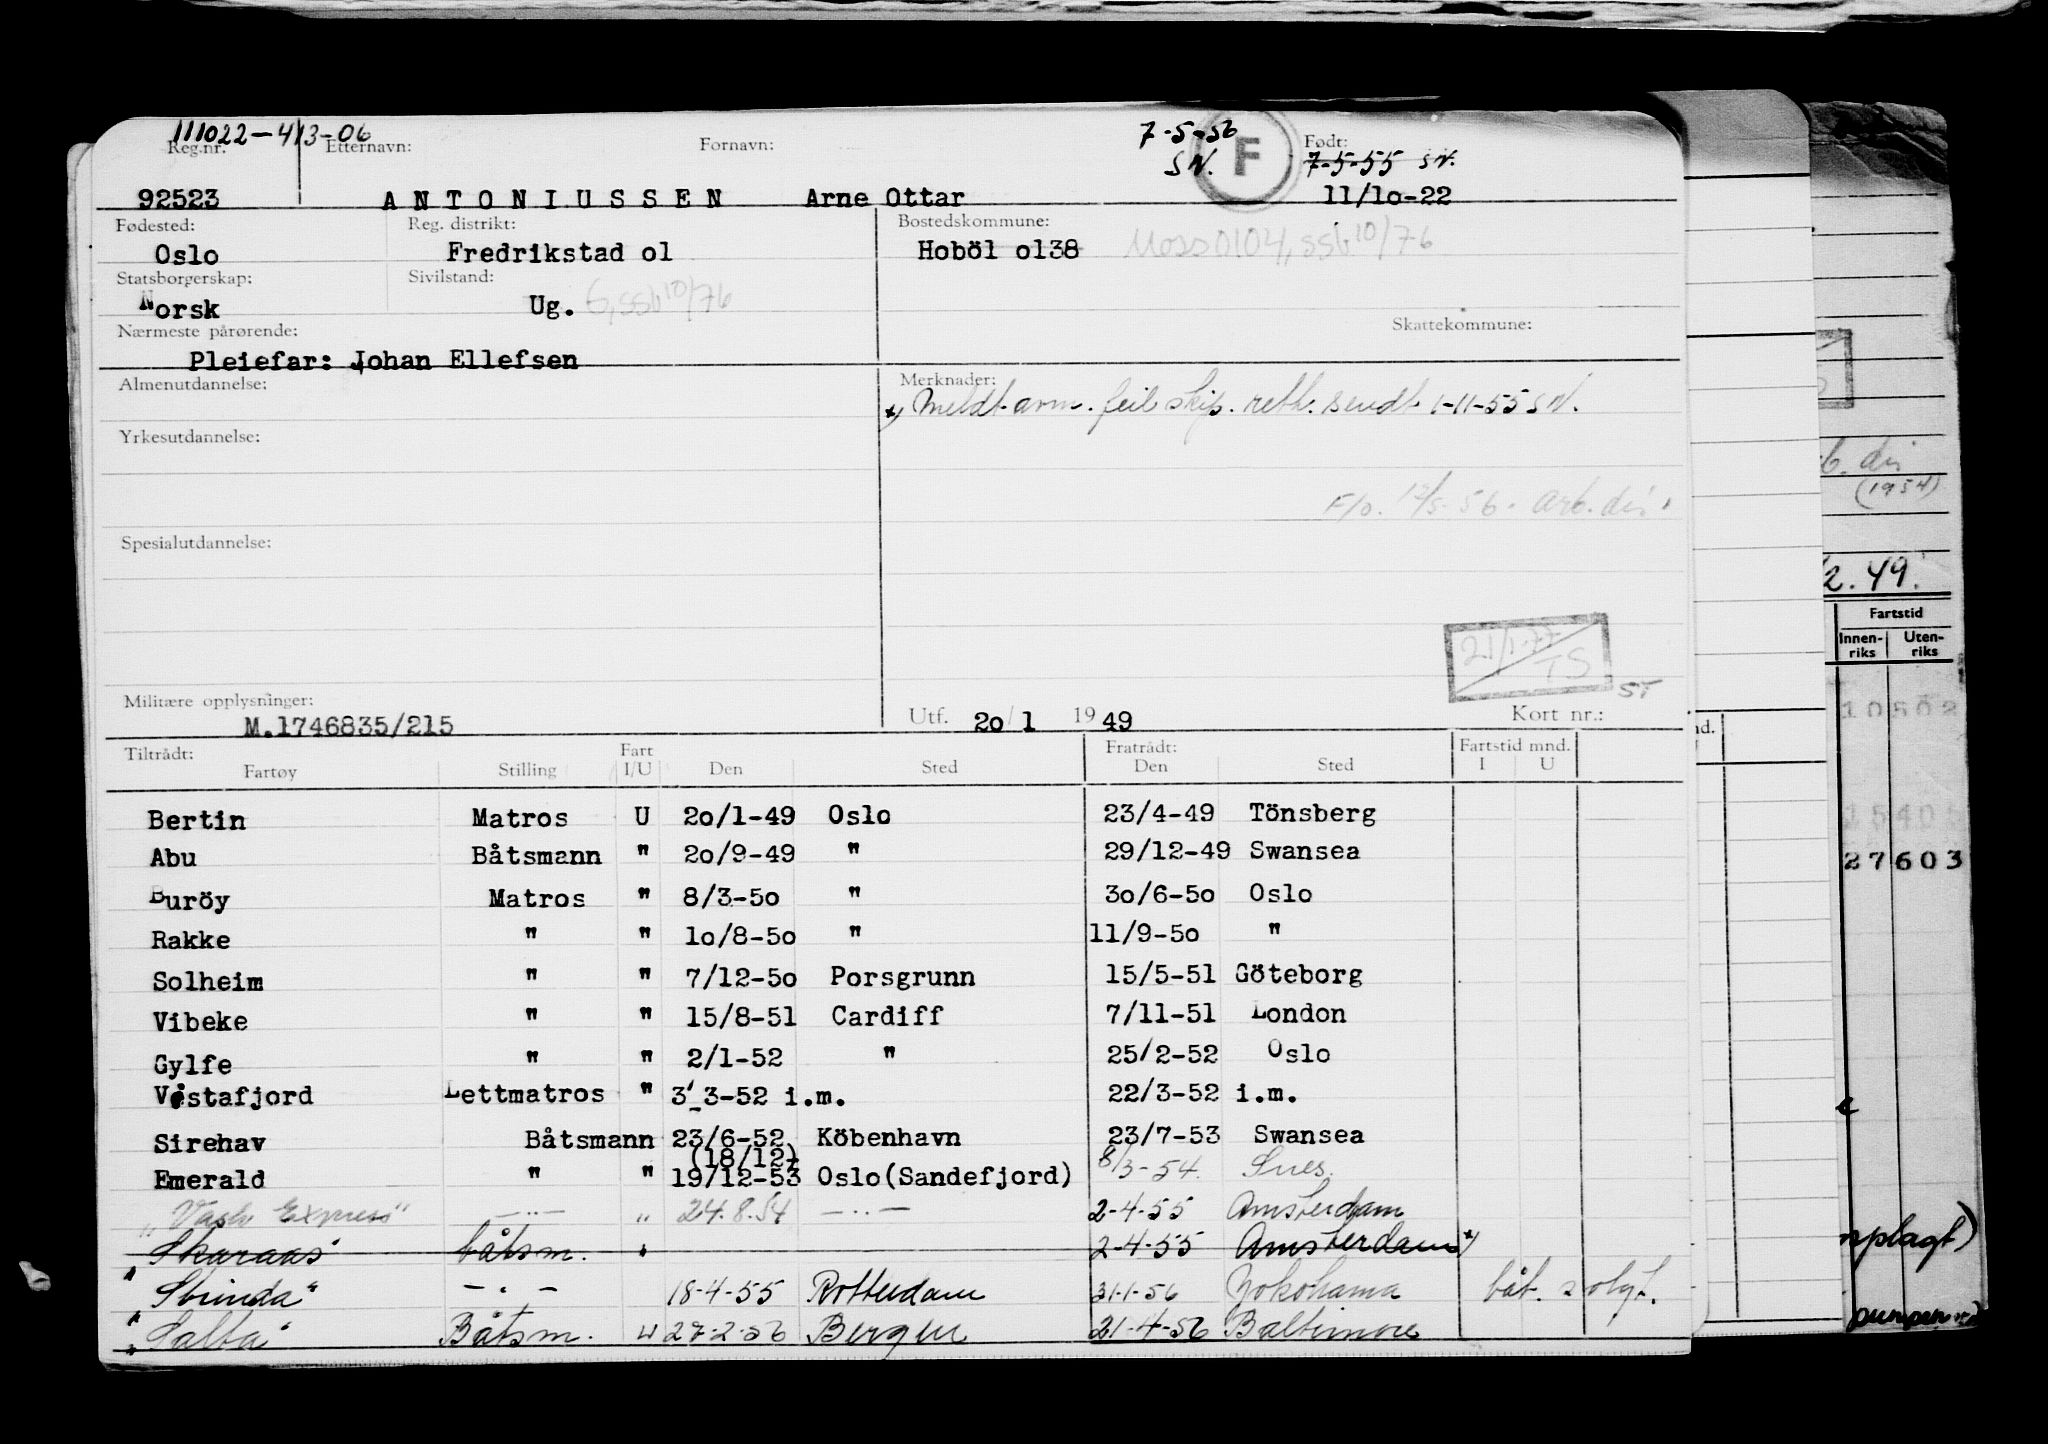 111022-413-06 7-5-56
Reg.nr. Etternavn: Fornavn: SN. F Født: 7-5-55 SN.
92523 ANTONIUSSEN Arne Ottar 11/10-22
Fødested: Reg. distrikt: Bostedskommune:
Oslo Fredrikstad 01 Hoböl 0138 Moss 0104, SSB 10/76
Statsborgerskap: Sivilstand:
Norsk Ug. G, SSB 10/76
Nærmeste pårørende: Skattekommune:
Pleiefar: Johan Ellefsen
Almenutdannelse: Merknader:
x) Meldt arm. feil skip. reth. sendt 1-11-55 SN.
Yrkesutdannelse:
F/o. 12/5-56. arb. dir.
Spesialutdannelse:
21/1-77 TS
ST
Militære opplysninger: Utf. 20/1 1949 Kort nr.:
M.1746835/215
Tiltrådt: Fart Fratrådt: Fartstid mnd.
Fartøy Stilling I/U Den Sted Den Sted I U
Bertin Matros U 20/1-49 Oslo 23/4-49 Tönsberg
Abu Båtsmann " 20/9-49 " 29/12-49 Swansea
Buröy Matros " 8/3-50 " 30/6-50 Oslo
Rakke " " 10/8-50 " 11/9-50 "
Solheim " " 7/12-50 Porsgrunn 15/5-51 Göteborg
Vibeke " " 15/8-51 Cardiff 7/11-51 London
Gylfe " " 2/1-52 " 25/2-52 Oslo
Vestafjord Lettmatros " 3/3-52 i.m. 22/3-52 i.m.
Sirehav Båtsmann 23/6-52 Köbenhavn 23/7-53 Swansea
(18/12)
Emerald " " 19/12-53 Oslo(Sandefjord) 8/3-54. Sues.
"Vash Express" -"- " 24.8.54 -"- 2-4-55 Amsterdam
"Skaraas" båtsm. " 2-4-55 Amsterdam x)
"Strinda" -"- 18-4-55 Rotterdam 31-1-56 Yokohama båt. solgt.
"Salta" Båtsm. U 27-2-56 Bergen 21-4-56 Baltimore
nd.
b. dir
(1954)
2.49.
Fartstid
Innen-riks Uten-riks
10502
15405
27603
nplagt)